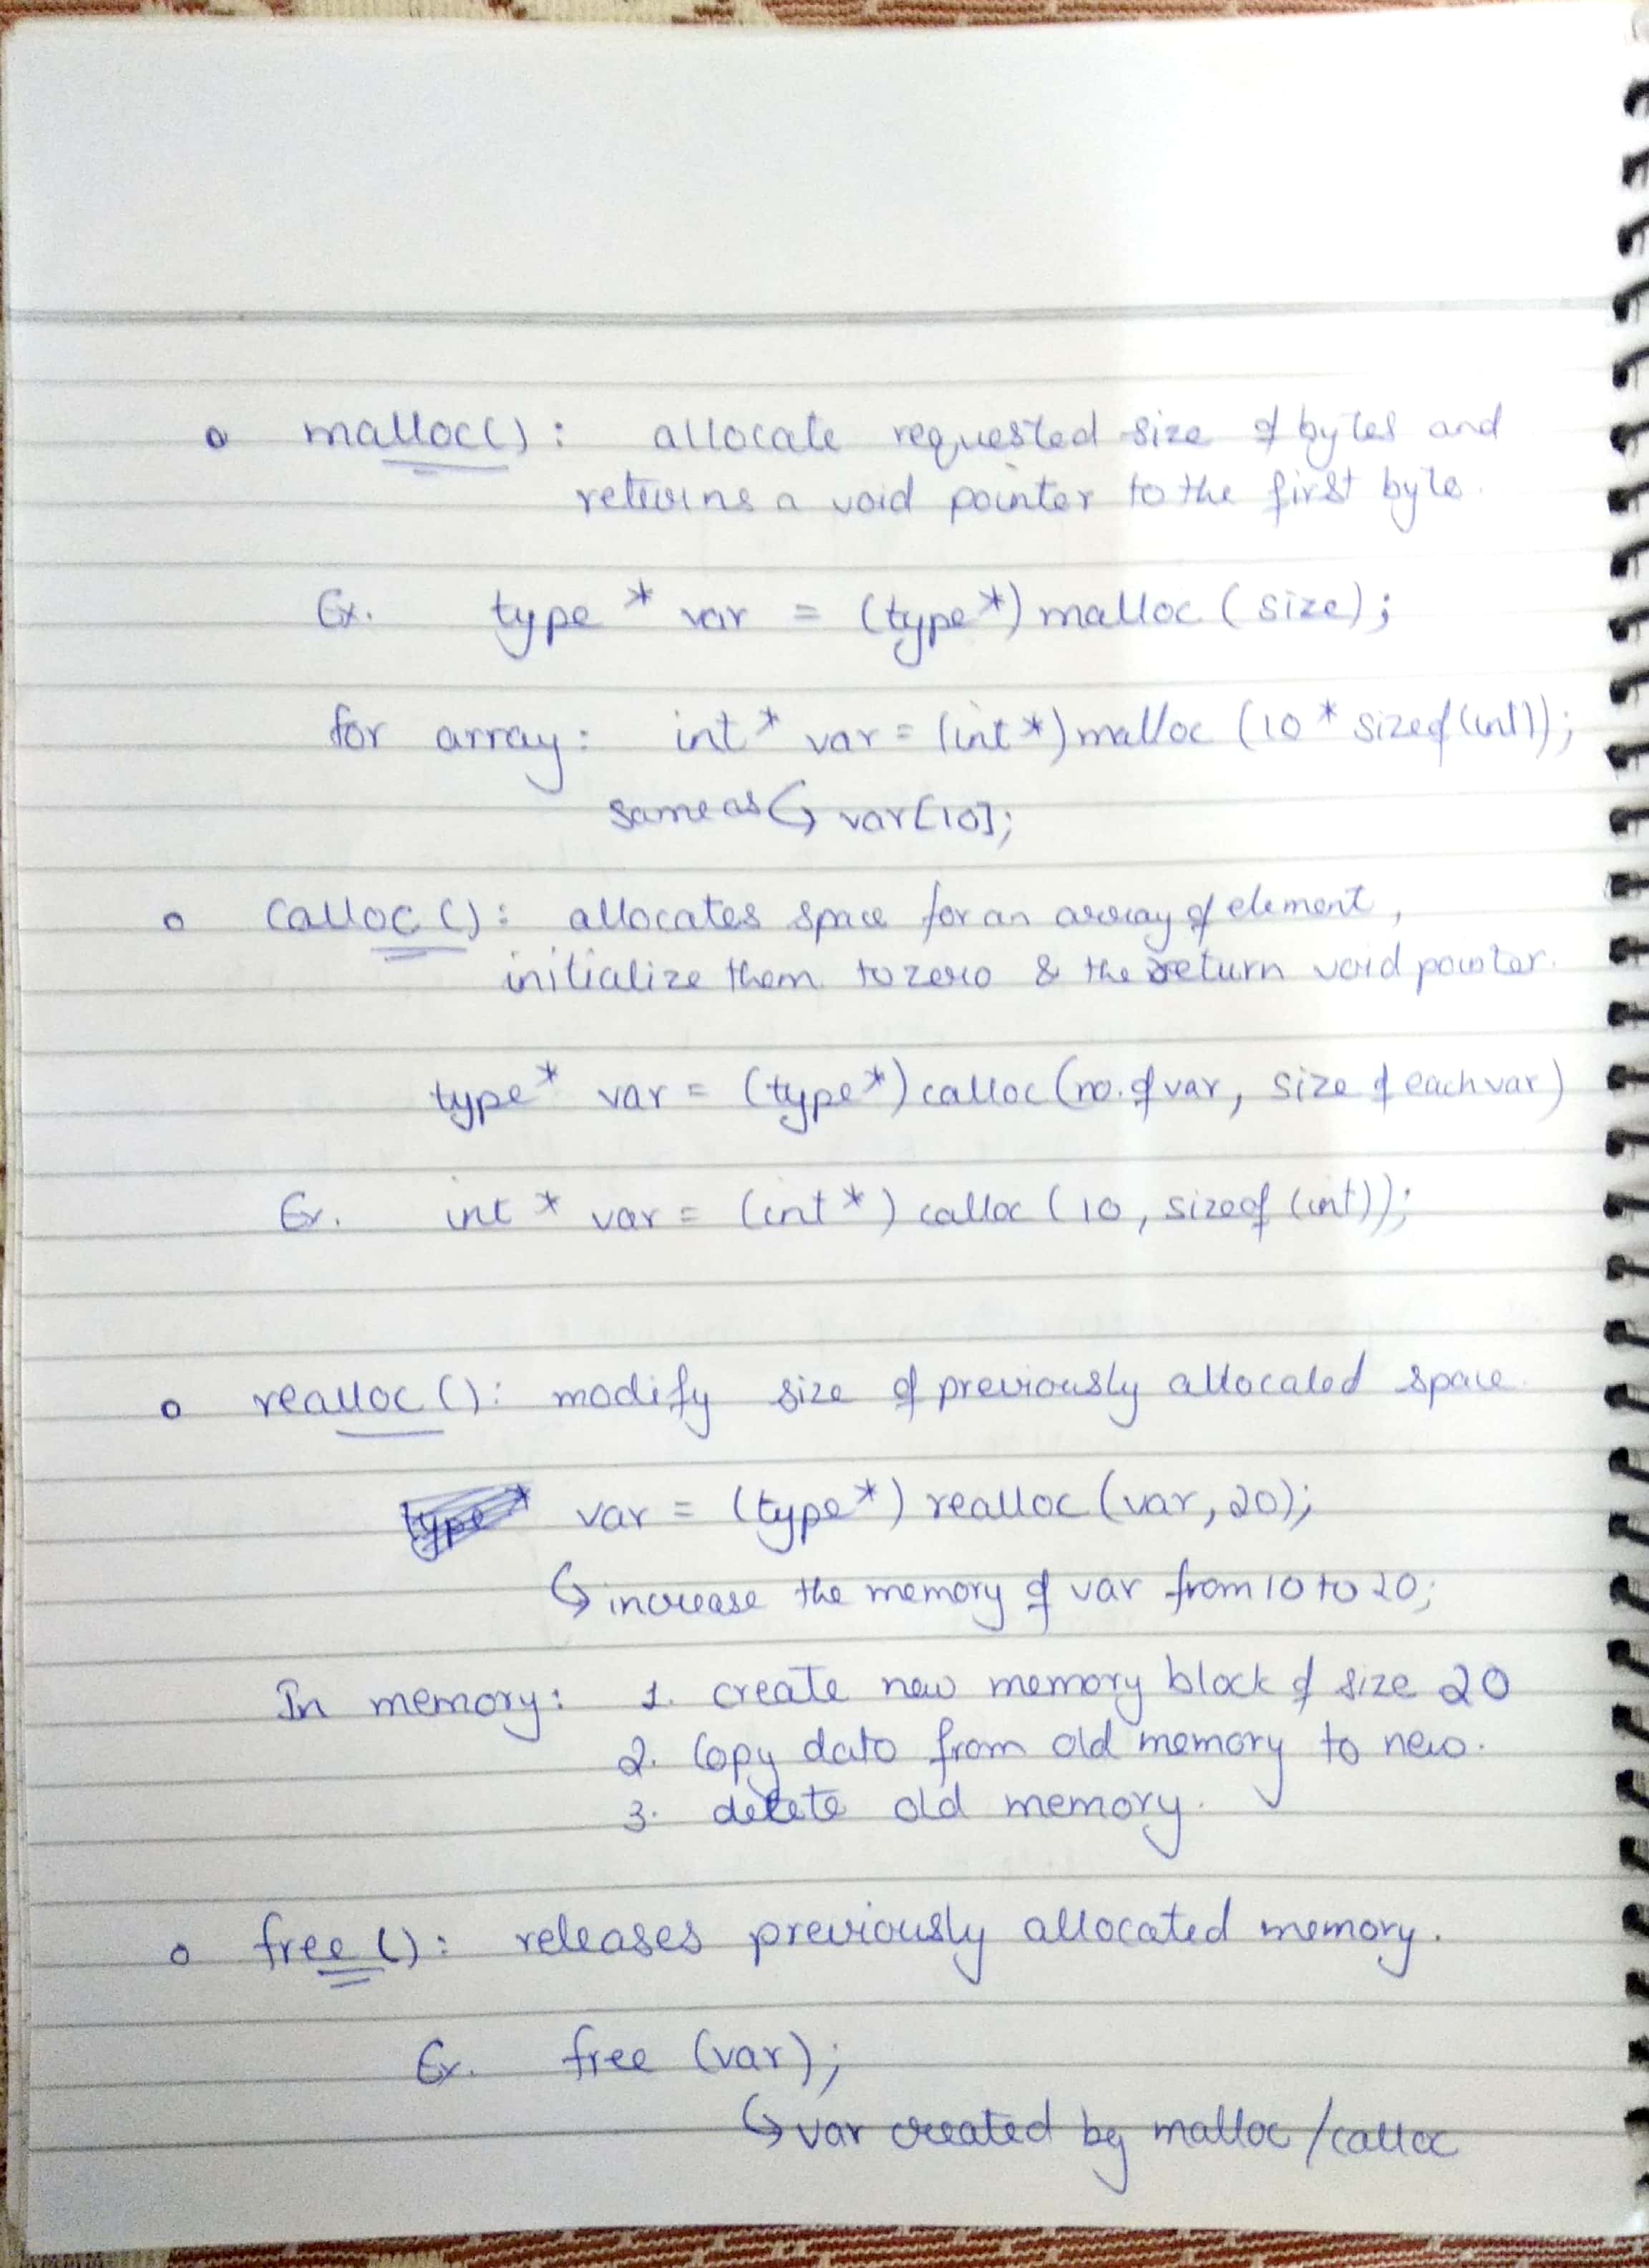 o malloc() : allocate requested size of bytes and
returns a void pointer to the first byte.
Ex. type * var = (type*) malloc ( size );
for array: int * var = (int *) malloc (10 * sizeof(int));
same as ↳ var[10];
o calloc () : allocates space for an array of element,
initialize them to zero & the return void pointer.
type* var = (type*) calloc (no. of var, size of each var)
Ex. int * var = (int *) calloc ( 10, sizeof (int));
o realloc () : modify size of previously allocated space.
type* var = (type*) realloc (var, 20);
↳ increase the memory of var from 10 to 20;
In memory: 1. create new memory block of size 20
2. Copy data from old memory to new.
3. delete old memory.
o free () : releases previously allocated memory.
Ex. free (var);
↳ var created by malloc /calloc